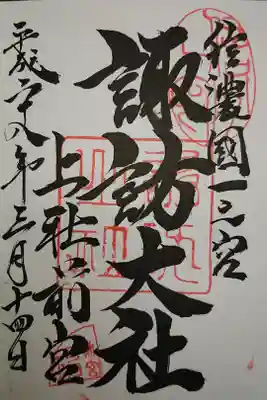 信濃國一之宮
諏訪大社
上社前宮
平成二十八年三月十四日